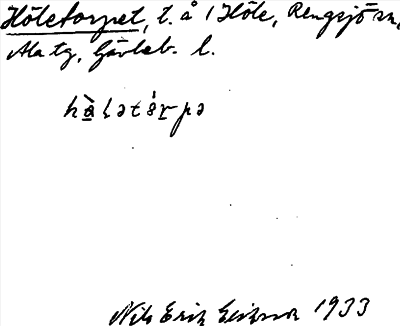 Höletorpet, t. å 1 Höle, Rengsjö sn,
Ala tg, Gävleb. l.
Nils Erik Eriksson 1933